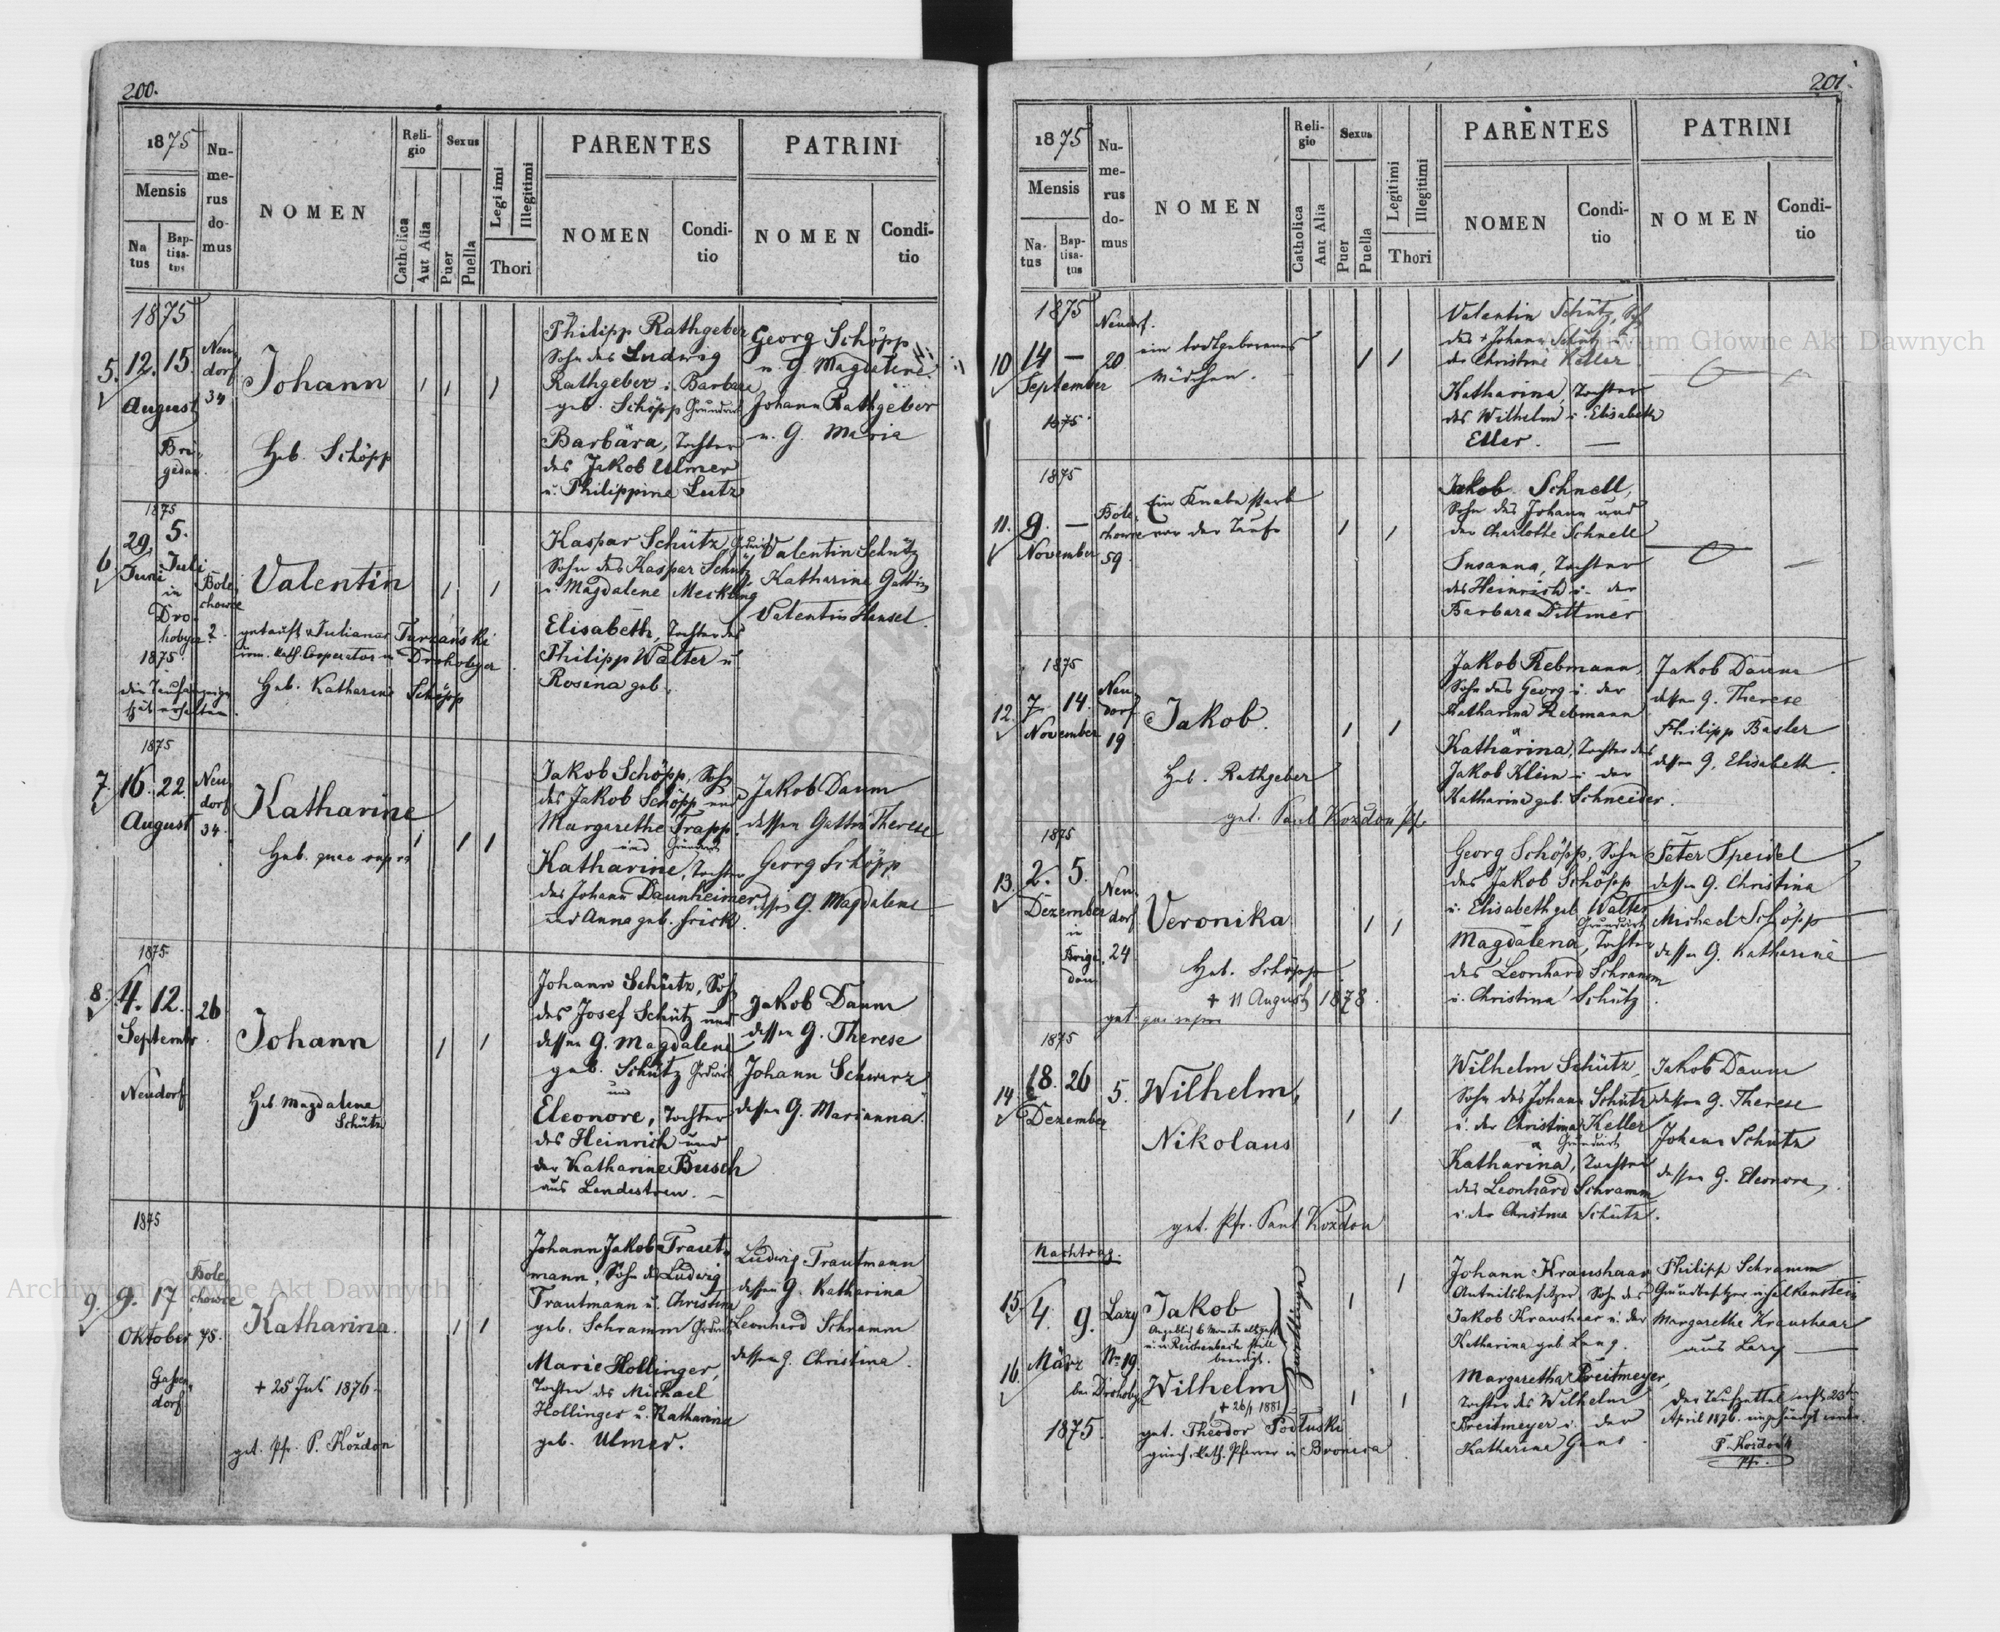 200.
1875
Mensis
Na
tus
Bap-
tisa-
tus
Nu-
me-
rus
do-
mus
NOMEN
Reli-
gio
Catholica
Aut Alia
Sexus
Puer
Puella
Legi imi
Illegitimi
Thori
PARENTES
NOMEN
Condi-
tio
PATRINI
NOMEN
Condi-
tio
1875
5. 12. 15.
August
Neu
dorf
34
Bri-
gidau.
Johann
Heb. Schöpp
Philipp Rathgeber
Sohn des Ludwig
Rathgeber u. Barbara
geb. Schöpp Grundwirt
Barbara, Tochter
des Jakob Ulmer
u. Philippine Lutz
Georg Schöpp
u. G. Magdalene
Johann Rathgeber
u. G. Maria
1875
6. 29. 5.
Juni Juli
in
Dro-
hobycz
1875.
Bole
chowce
2.
Valentin
getauft v. Julianus Turzański
röm. kath. Cooperator in Drohobycz
Heb. Katharine Schöpp
die Taufanzeige
erhalten
Kaspar Schütz, Grundwirt
Sohn des Kaspar Schütz
u. Magdalene Meckling
Elisabeth, Tochter des
Philipp Walter u
Rosina geb.
Valentin Schütz
Katharine Gattin
Valentin Hensel.
1875
7. 16. 22.
August
Neu
dorf
34.
Katharine
Heb. quae supra
Jakob Schöpp, Sohn
des Jakob Schöpp und
Margarethe Trapp,
und Grundwirt
Katharine, Tochter
des Johann Daunheimer
und Anna geb. Frick.
Jakob Daum
dessen Gattin Therese
Georg Schöpp
dessen G. Magdalene
1875.
8. 4. 12.
Septembr.
26
Neudorf
Johann
Heb. Magdalena
Schütz
Johann Schütz, Sohn
des Josef Schütz und
dessen G. Magdalene
geb. Schütz Grdwirt
und
Eleonore, Tochter
des Heinrich und
der Katharine Busch
aus Landestreu. –
Jakob Daum
dessen G. Therese
Johann Schwarz
dessen G. Marianna.
1875
9. 9. 17
Oktober
Bole
chowce
75.
Gassen-
dorf
Katharina.
+ 25 Juli 1876.
get. Pfr. P. Kozdon
Johann Jakob Traut-
mann, Sohn des Ludwig
Trautmann u. Christina
geb. Schramm Grundw
Marie Hollinger,
Tochter des Michael
Hollinger u. Katharina
geb. Ulmer.
Ludwig Trautmann
dessen G. Katharina
Leonhard Schramm
dessen G. Christina.
201.
1875
Mensis
Na-
tus
Bap-
tisa-
tus
Nu-
me-
rus
do-
mus
NOMEN
Reli-
gio
Catholica
Aut Alia
Sexus
Puer
Puella
Legitimi
Illegitimi
Thori
PARENTES
NOMEN
Condi-
tio
PATRINI
NOMEN
Condi-
tio
1875
10 14 –
September
1875
Neudorf.
20
ein todtgeborenes
Mädchen.
Valentin Schütz, Sohn
des + Johann Schütz u
der Christine Keller
Katharina, Tochter
des Wilhelm u. Elisabeth
Etter.
1875
11. 9. –
November
Bole-
chowce
59.
Ein Knabe starb
vor der Taufe
Jakob Schnell,
Sohn des Johann und
der Charlotte Schnell
Susanna, Tochter
des Heinrich u. der
Barbara Dittmer
1875
12. 7. 14.
November
Neu
dorf
19
Jakob.
Heb. Rathgeber
get. Paul Kozdon Pf.
Jakob Rebmann,
Sohn des Georg u. der
Katharina Rebmann
Katharina, Tochter des
Jakob Klein u. der
Katharina geb. Schneider.
Jakob Daum
dessen G. Therese
Philipp Basler
dessen G. Elisabeth.
1875
13. 2. 5.
Dezember
in
Brigi-
dau
Neu-
dorf
24
Veronika
Heb. Schöpp
+ 11 August 1878.
get. qui supra
Georg Schöpp, Sohn
des Jakob Schöpp
u. Elisabeth geb. Walter
Grundwirt
Magdalena, Tochter
des Leonhard Schramm
u. Christina Schütz.
Peter Speidel
dessen G. Christina
Michael Schöpp
dessen G. Katharine
1875
14. 18. 26
Dezember
5.
Wilhelm,
Nikolaus
get. Pfr. Paul Kozdon
Wilhelm Schütz,
Sohn des Johann Schütz
u. der Christina Keller
Grundwirt
Katharina, Tochter
des Leonhard Schramm
u. der Christina Schütz.
Jakob Daum
dessen G. Therese
Johann Schütz
dessen G. Eleonore,
Nachtrag.
15. 4. 9.
16. März
1875.
Lazy
No 19.
bei Drohobyz
Jakob
Angeblich 6 Monate alt
u. in Reichenbach still
beerdigt.
Zwillinge
Wilhelm
+ 26/1 1881
get. Theodor Podłuski
griech. kath. Pfarrer in Bronica
Johann Kraushaar
Antheilsbesitzer, Sohn des
Jakob Kraushaar u. der
Katharina geb. Lang.
Margaretha Breitmeyer,
Tochter des Wilhelm
Breitmeyer u. der
Katharina Gans.
Philipp Schramm
Grundbesitzer in Falkenstein
Margarethe Kraushaar
aus Lazy
Der Taufzettel erst 23ten
April 1876. eingehändigt
P. Kozdon
Archiwum Główne Akt Dawnych
Archiwum Główne Akt Dawnych